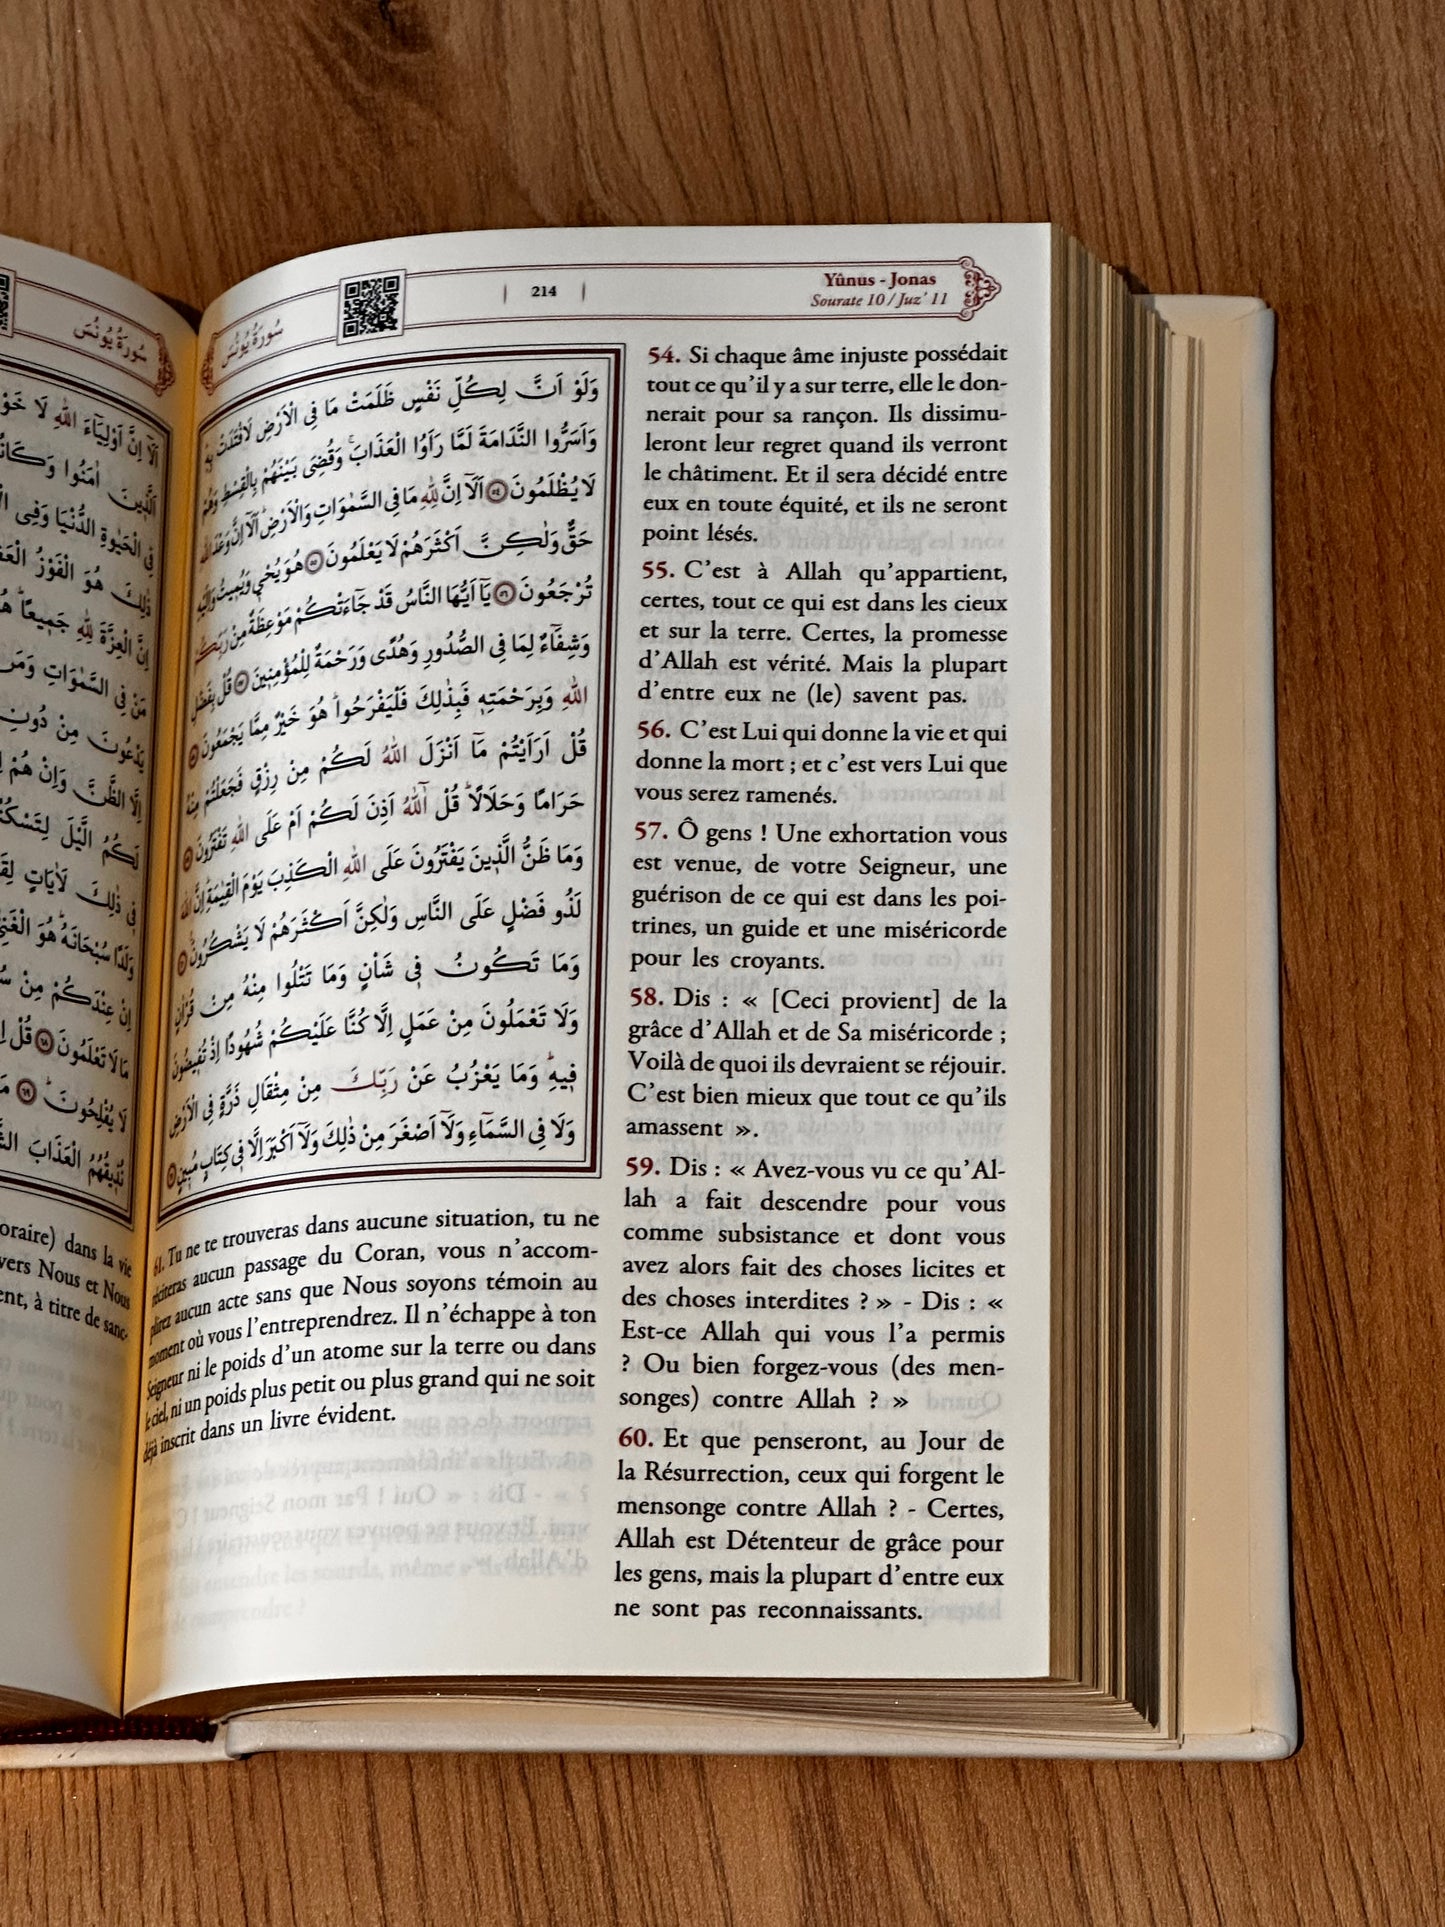 سُورَةُ يُونُسَ
214
Yûnus - Jonas
Sourate 10 / Juz' 11
وَلَوْ اَنَّ لِكُلِّ نَفْسٍ ظَلَمَتْ مَا فِى الْاَرْضِ لَافْتَدَتْ بِهٖ
وَاَسَرُّوا النَّدَامَةَ لَمَّا رَاَوُا الْعَذَابَ وَقُضِىَ بَيْنَهُمْ بِالْقِسْطِ وَهُمْ
لَا يُظْلَمُونَ ٥٤ اَلَٓا اِنَّ لِلّٰهِ مَا فِى السَّمٰوَاتِ وَالْاَرْضِ اَلَٓا اِنَّ وَعْدَ اللّٰهِ
حَقٌّ وَلٰكِنَّ اَكْثَرَهُمْ لَا يَعْلَمُونَ ٥٥ هُوَ يُحْيٖ وَيُمٖيتُ وَاِلَيْهِ
تُرْجَعُونَ ٥٦ يَٓا اَيُّهَا النَّاسُ قَدْ جَٓاءَتْكُمْ مَوْعِظَةٌ مِنْ رَبِّكُمْ
وَشِفَٓاءٌ لِمَا فِى الصُّدُورِ وَهُدًى وَرَحْمَةٌ لِلْمُؤْمِنٖينَ ٥٧ قُلْ بِفَضْلِ
اللّٰهِ وَبِرَحْمَتِهٖ فَبِذٰلِكَ فَلْيَفْرَحُوا هُوَ خَيْرٌ مِمَّا يَجْمَعُونَ ٥٨
قُلْ اَرَاَيْتُمْ مَٓا اَنْزَلَ اللّٰهُ لَكُمْ مِنْ رِزْقٍ فَجَعَلْتُمْ مِنْهُ
حَرَامًا وَحَلَالًا قُلْ آٰللّٰهُ اَذِنَ لَكُمْ اَمْ عَلَى اللّٰهِ تَفْتَرُونَ ٥٩
وَمَا ظَنُّ الَّذٖينَ يَفْتَرُونَ عَلَى اللّٰهِ الْكَذِبَ يَوْمَ الْقِيٰمَةِ اِنَّ اللّٰهَ
لَذُو فَضْلٍ عَلَى النَّاسِ وَلٰكِنَّ اَكْثَرَهُمْ لَا يَشْكُرُونَ ٦٠
وَمَا تَكُونُ فٖى شَاْنٍ وَمَا تَتْلُوا مِنْهُ مِنْ قُرْاٰنٍ
وَلَا تَعْمَلُونَ مِنْ عَمَلٍ اِلَّا كُنَّا عَلَيْكُمْ شُهُودًا اِذْ تُفٖيضُونَ
فٖيهِ وَمَا يَعْزُبُ عَنْ رَبِّكَ مِنْ مِثْقَالِ ذَرَّةٍ فِى الْاَرْضِ
وَلَا فِى السَّمَٓاءِ وَلَٓا اَصْغَرَ مِنْ ذٰلِكَ وَلَٓا اَكْبَرَ اِلَّا فٖى كِتَابٍ مُبٖينٍ ٦١
54. Si chaque âme injuste possédait
tout ce qu'il y a sur terre, elle le don-
nerait pour sa rançon. Ils dissimu-
leront leur regret quand ils verront
le châtiment. Et il sera décidé entre
eux en toute équité, et ils ne seront
point lésés.
55. C'est à Allah qu'appartient,
certes, tout ce qui est dans les cieux
et sur la terre. Certes, la promesse
d'Allah est vérité. Mais la plupart
d'entre eux ne (le) savent pas.
56. C'est Lui qui donne la vie et qui
donne la mort ; et c'est vers Lui que
vous serez ramenés.
57. Ô gens ! Une exhortation vous
est venue, de votre Seigneur, une
guérison de ce qui est dans les poi-
trines, un guide et une miséricorde
pour les croyants.
58. Dis : « [Ceci provient] de la
grâce d'Allah et de Sa miséricorde ;
Voilà de quoi ils devraient se réjouir.
C'est bien mieux que tout ce qu'ils
amassent ».
59. Dis : « Avez-vous vu ce qu'Al-
lah a fait descendre pour vous
comme subsistance et dont vous
avez alors fait des choses licites et
des choses interdites ? » - Dis : «
Est-ce Allah qui vous l'a permis
? Ou bien forgez-vous (des men-
songes) contre Allah ? »
60. Et que penseront, au Jour de
la Résurrection, ceux qui forgent le
mensonge contre Allah ? - Certes,
Allah est Détenteur de grâce pour
les gens, mais la plupart d'entre eux
ne sont pas reconnaissants.
61. Tu ne te trouveras dans aucune situation, tu ne
réciteras aucun passage du Coran, vous n'accom-
plirez aucun acte sans que Nous soyons témoin au
moment où vous l'entreprendrez. Il n'échappe à ton
Seigneur ni le poids d'un atome sur la terre ou dans
le ciel, ni un poids plus petit ou plus grand qui ne soit
déjà inscrit dans un livre évident.
سُورَةُ يُونُسَ
اَلَٓا اِنَّ اَوْلِيَٓاءَ اللّٰهِ لَا
اَلَّذٖينَ اٰمَنُوا
فِى الْحَيٰوةِ الدُّنْيَا وَفِى
ذٰلِكَ هُوَ الْفَوْزُ
اِنَّ الْعِزَّةَ لِلّٰهِ جَمٖيعًا
مَنْ فِى السَّمٰوَاتِ
يَدْعُونَ مِنْ دُونِ
اِلَّا الظَّنَّ وَاِنْ هُمْ
لَكُمُ الَّيْلَ
فٖى ذٰلِكَ لَاٰيَاتٍ
وَلَدًا سُبْحَانَهُ هُوَ
اِنْ عِنْدَكُمْ مِنْ
مَا لَا تَعْلَمُونَ ٦٨ قُلْ
لَا يُفْلِحُونَ ٦٩
نُذٖيقُهُمُ الْعَذَابَ
oraire) dans la vie
vers Nous et Nous
ent, à titre de sanc-